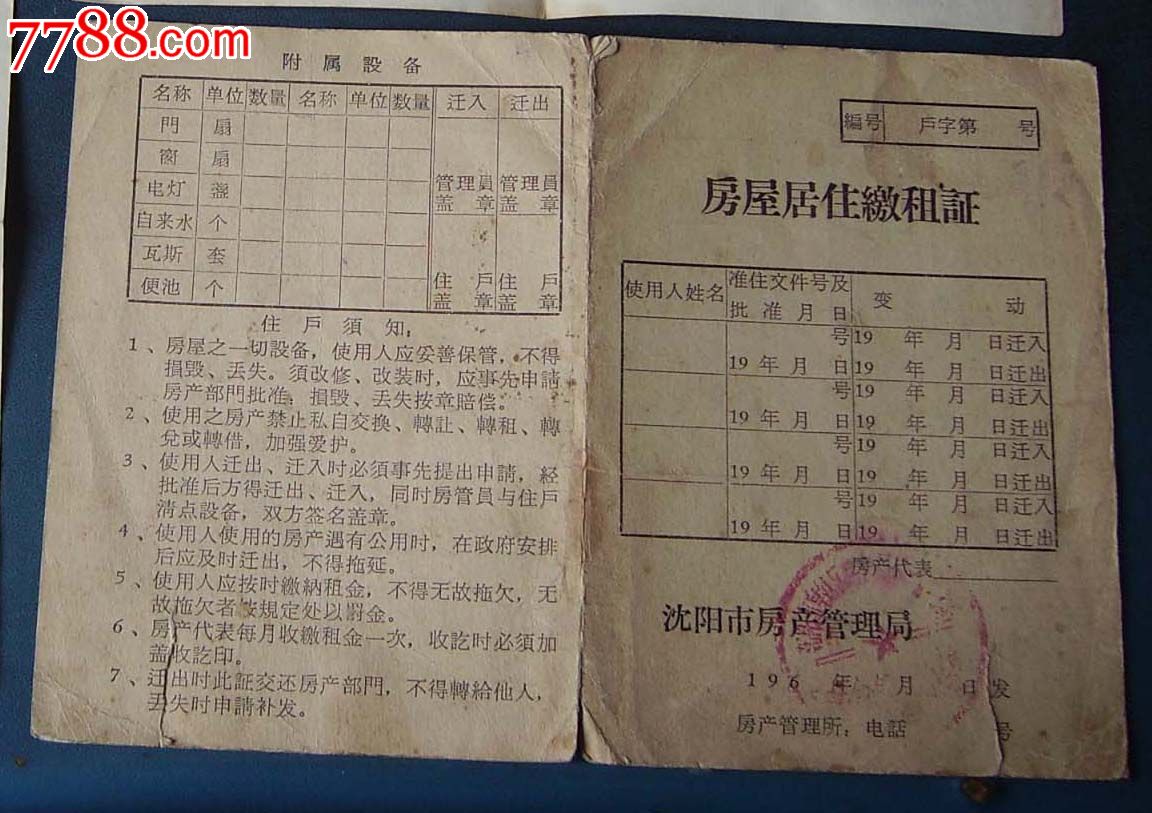 7788.com
附属設备
名称 单位 数量 名称 单位 数量 迁入 迁出
門 扇
窗 扇
电灯 盏 管理員 管理員
盖章 盖章
自来水 个
瓦斯 套
便池 个 住戶 住戶
盖章 盖章
住戶須知:
1、房屋之一切設备，使用人应妥善保管，不得
損毁、丢失。須改修、改装时，应事先申請
房产部門批准，損毁、丢失按章賠偿。
2、使用之房产禁止私自交换、轉讓、轉租、轉
兌或轉借，加强爱护。
3、使用人迁出、迁入时必須事先提出申請，經
批准后方得迁出、迁入，同时房管員与住戶
清点設备，双方签名盖章。
4、使用人使用的房产遇有公用时，在政府安排
后应及时迁出，不得拖延。
5、使用人应按时繳納租金，不得无故拖欠，无
故拖欠者按規定处以罰金。
6、房产代表每月收繳租金一次，收訖时必須加
盖收訖印。
7、迁出时此証交还房产部門，不得轉給他人，
丢失时申請补发。
編号 戶字第 号
房屋居住繳租証
使用人姓名 准住文件号及 变动
批准月日
号 19 年 月 日迁入
19 年 月 日 19 年 月 日迁出
号 19 年 月 日迁入
19 年 月 日 19 年 月 日迁出
号 19 年 月 日迁入
19 年 月 日 19 年 月 日迁出
号 19 年 月 日迁入
19 年 月 日 19 年 月 日迁出
房产代表
沈阳市房产管理局
196 年 月 日发
房产管理所：电話 号